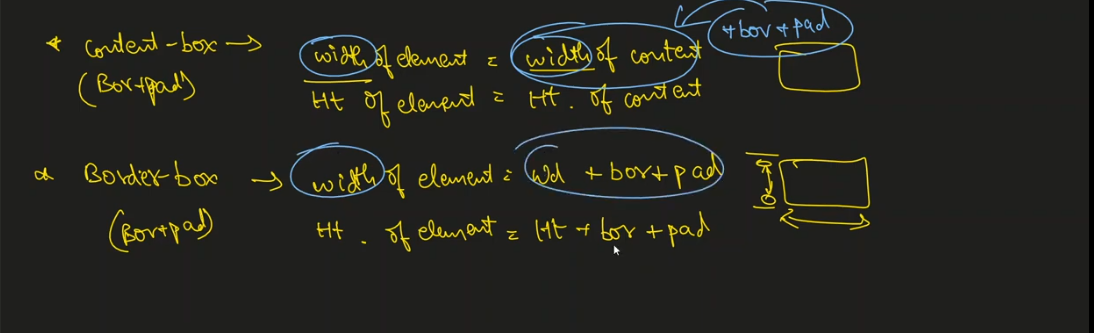 +bor+pad
* Content-box → width of element = width of content
(Bor+pad)
Ht of element = Ht. of content
* Border-box → width of element = Wd + bor + pad
(Bor+pad)
Ht. of element = Ht + bor + pad